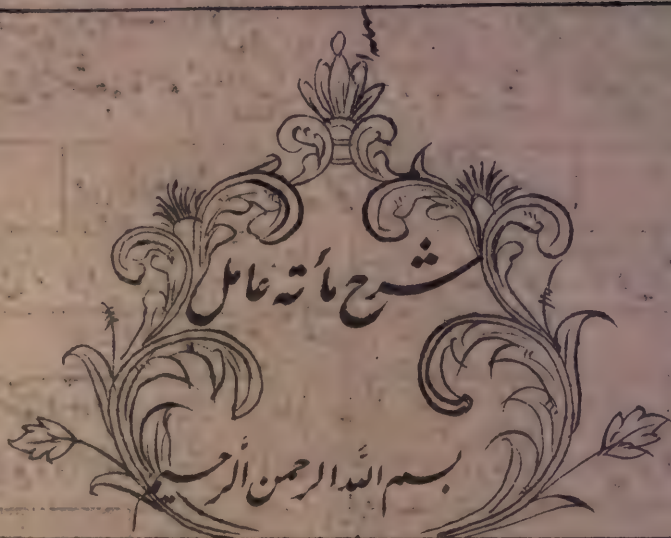 شرح مأته عامل
بسم الله الرحمن الرحيم